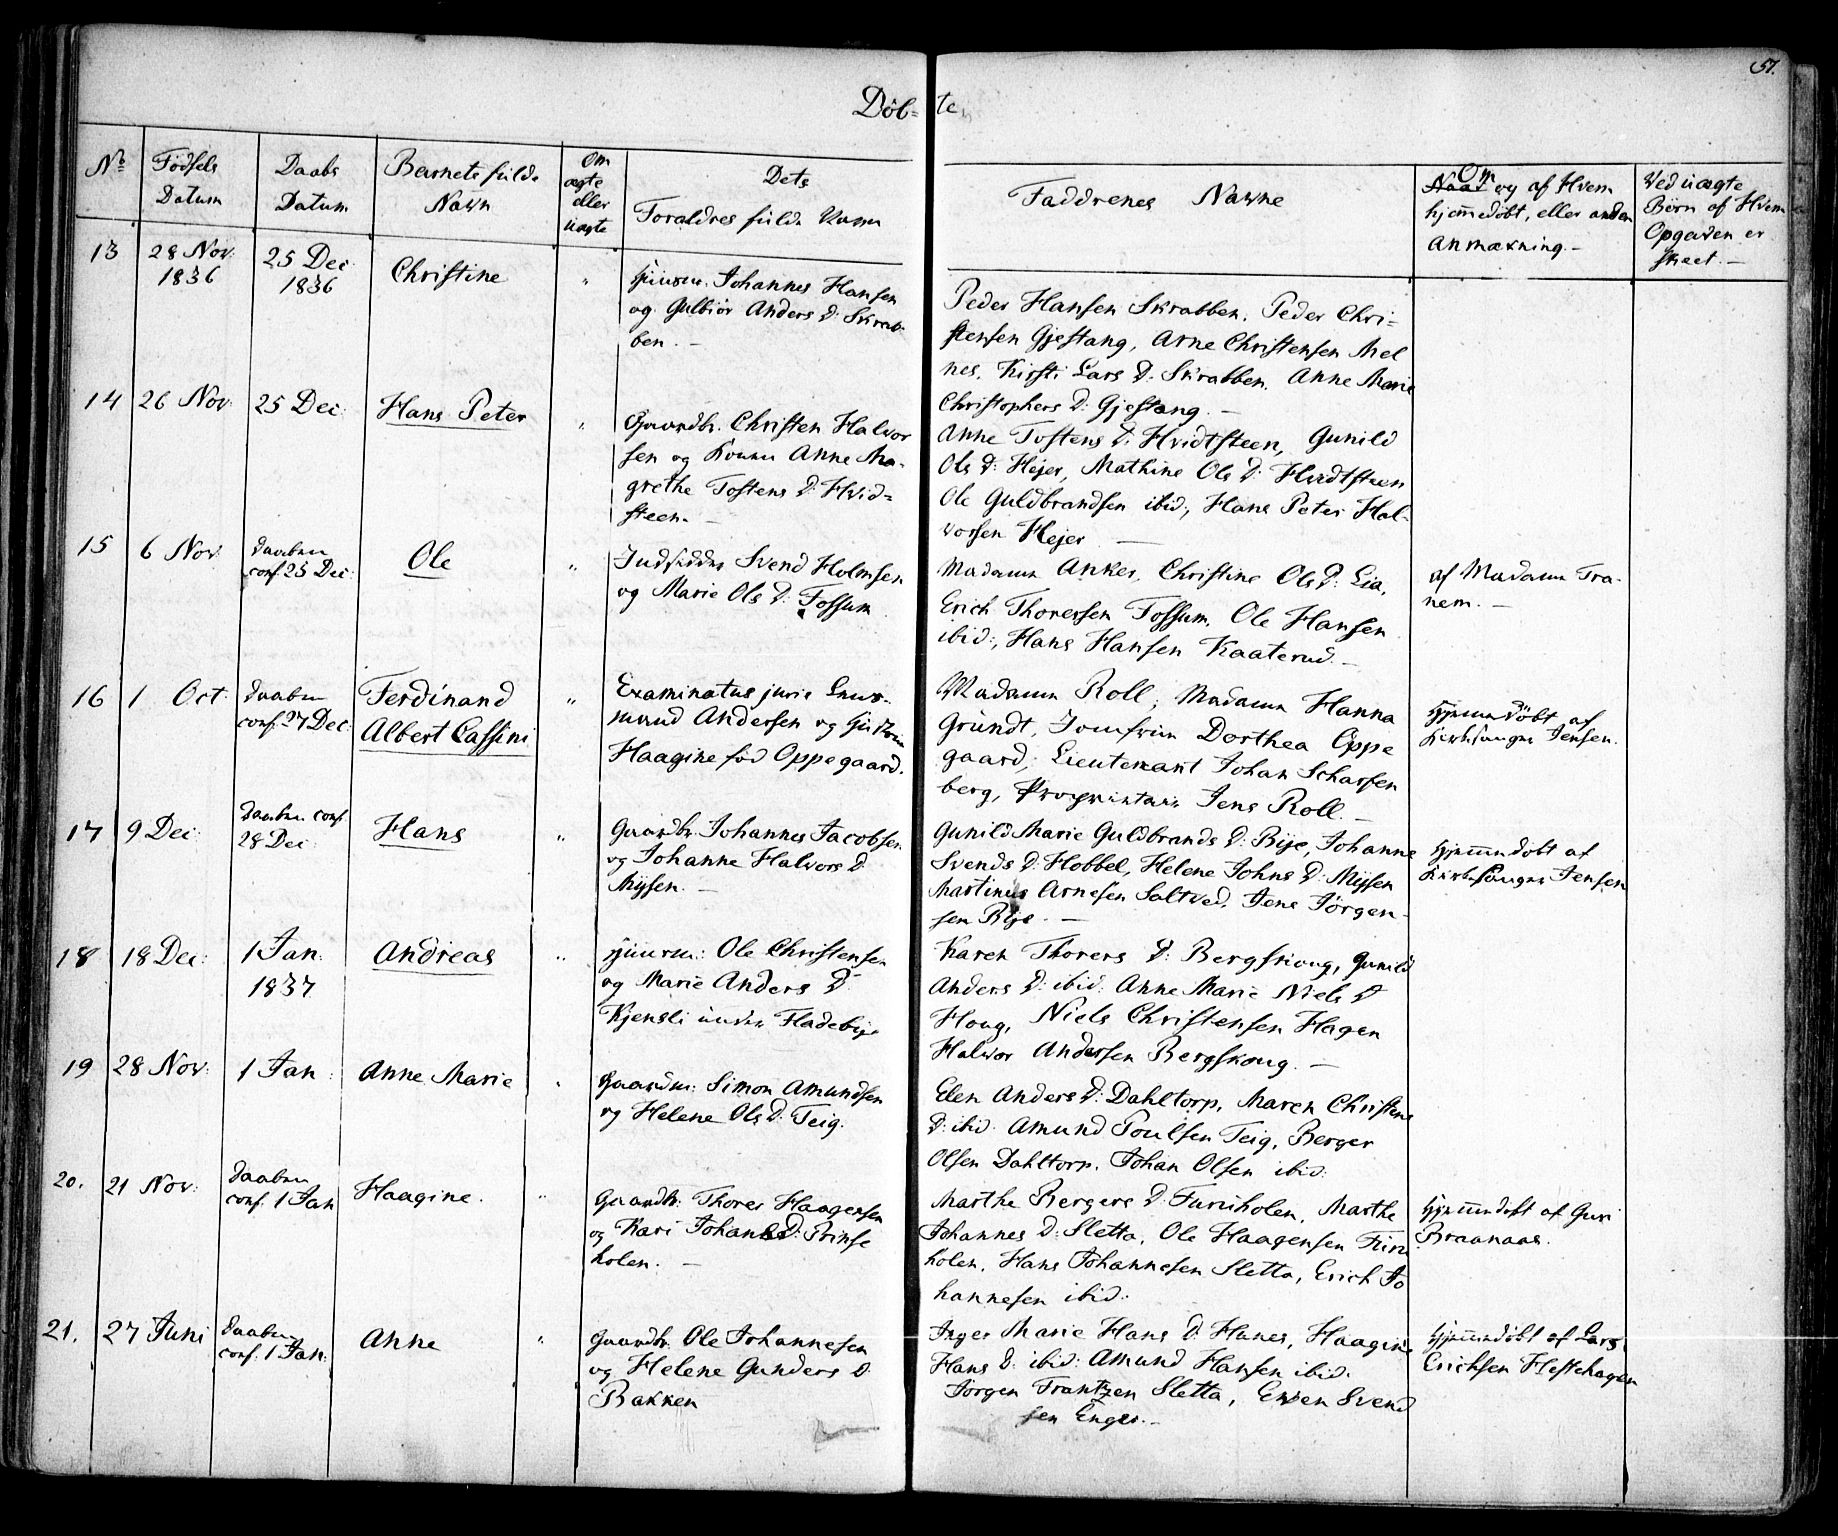 57.
Döb- te.
No
Födsels
Datum
Daabs
Datum
Barnets fulde
Navn
Om
ægte
eller
uægte
Dets
Forældres fulde Navn
Faddrenes Navne
Om og af Hvem
hjemmedöbt, eller anden
Anmærkning.-
Ved uægte
Börn af Hvem
Opgaven er
skeet.-
13 28 Nov: 25 Dec: Christine " Huusm. Johannes Hansen
1836 1836 og Gulbiör Anders D: Skrab-
ben.-
Peder Hansen Skrabben, Peder Chri-
stensen Gjestang, Arne Christensen Mel
nes, Kirsti Lars D: Skrabben, Anne Marie
Christophers D: Gjestang.-
14 26 Nov: 25 Dec: Hans Peter " Gaardbr. Christen Halvor
sen og Konne Anne Ma-
grethe Tostens D: Hvid-
steen.-
Anne Tostens D: Hvidtsteen, Gunild
Ols D: Hejer, Mathine Ols D: Hvidtsteen
Ole Guldbrandsen ibid:, Hans Peter Hal-
vorsen Hejer -
15 6 Nov: daaben Ole " Indsidder Svend Holmsen
conf. 25 Dec: og Marie Ols D: Fossum.
Madame Anker, Christine Ols D: Lia,
Erich Thoresen Fossum, Ole Hansen
ibid:, Hans Hansen Kaaterud.-
af Madame Tra-
nem.-
16 1 Oct: daaben Ferdinand " Examinatus juris
conf. 27 Dec: Albert Cassini mand Andersen og
Haagine föd Oppegaard.
Madame Roll, Madame Hanna
Gründt, Jomfrue Dorthea Oppe
gaard, Lieutenant Johan Scharfen
berg, Proprietair Jens Roll.-
Hjemmedöbt af
Kirkesanger Jensen.
17 9 Dec: daaben conf. Hans " Gaardbr. Johannes Jacobsen
28 Dec: og Johanne Halvors D:
Mysen.-
Gunild Marie Guldbrands D: Bye, Johanne
Svends D: Hobbel, Helene Johns D: Mysen
Martinus Arnesen Saltved, Jens Jörgen-
sen Bye.-
Hjemmedöbt af
Kirkesanger Jensen
18 18 Dec: 1 Jan: Andreas " Huusm: Ole Christensen
1837 og Marie Anders D:
Kjensli under Fladebye
Karen Thorers D: Bergskoug, Gunild
Anders D: ibid: Anne Marie Niels D
Houg, Niels Christensen Hagen
Halvor Andersen Bergskoug.-
19 28 Nov: 1 Jan: Anne Marie " Gaardm: Simon Amundsen
og Helene Ols D: Teig.
Elen Anders D: Dahltorp, Maren Christens
D: ibid. Amund Poulsen Teig, Berger
Olsen Dahltorp, Johan Olsen ibid:
20. 21 Nov: daaben Haagine. " Gaardbr. Thorer Haagensen
conf. 1 Jan og Kari Johans D: Prinse
holen.-
Marthe Bergers D: Furuholen, Marthe
Johannes D: Sletta, Ole Haagensen Furu
holen, Hans Johannesen Sletta, Erich Jo
hannesen ibid:
Hjemmedöbt af Guri
Braanaas.
21. 27 Juni daaben Anne " Gaardbr. Ole Johannesen
conf. 1 Jan: og Helene Gunders D:
Bakken
Inger Marie Hans D: Hunes, Haagine
Hans D: ibid: Amund Hansen ibid.
Jörgen Frantzen Sletta, Even Svend
sen Enger.-
Hjemmedöbt af Lars
Erichsen Hestehagen